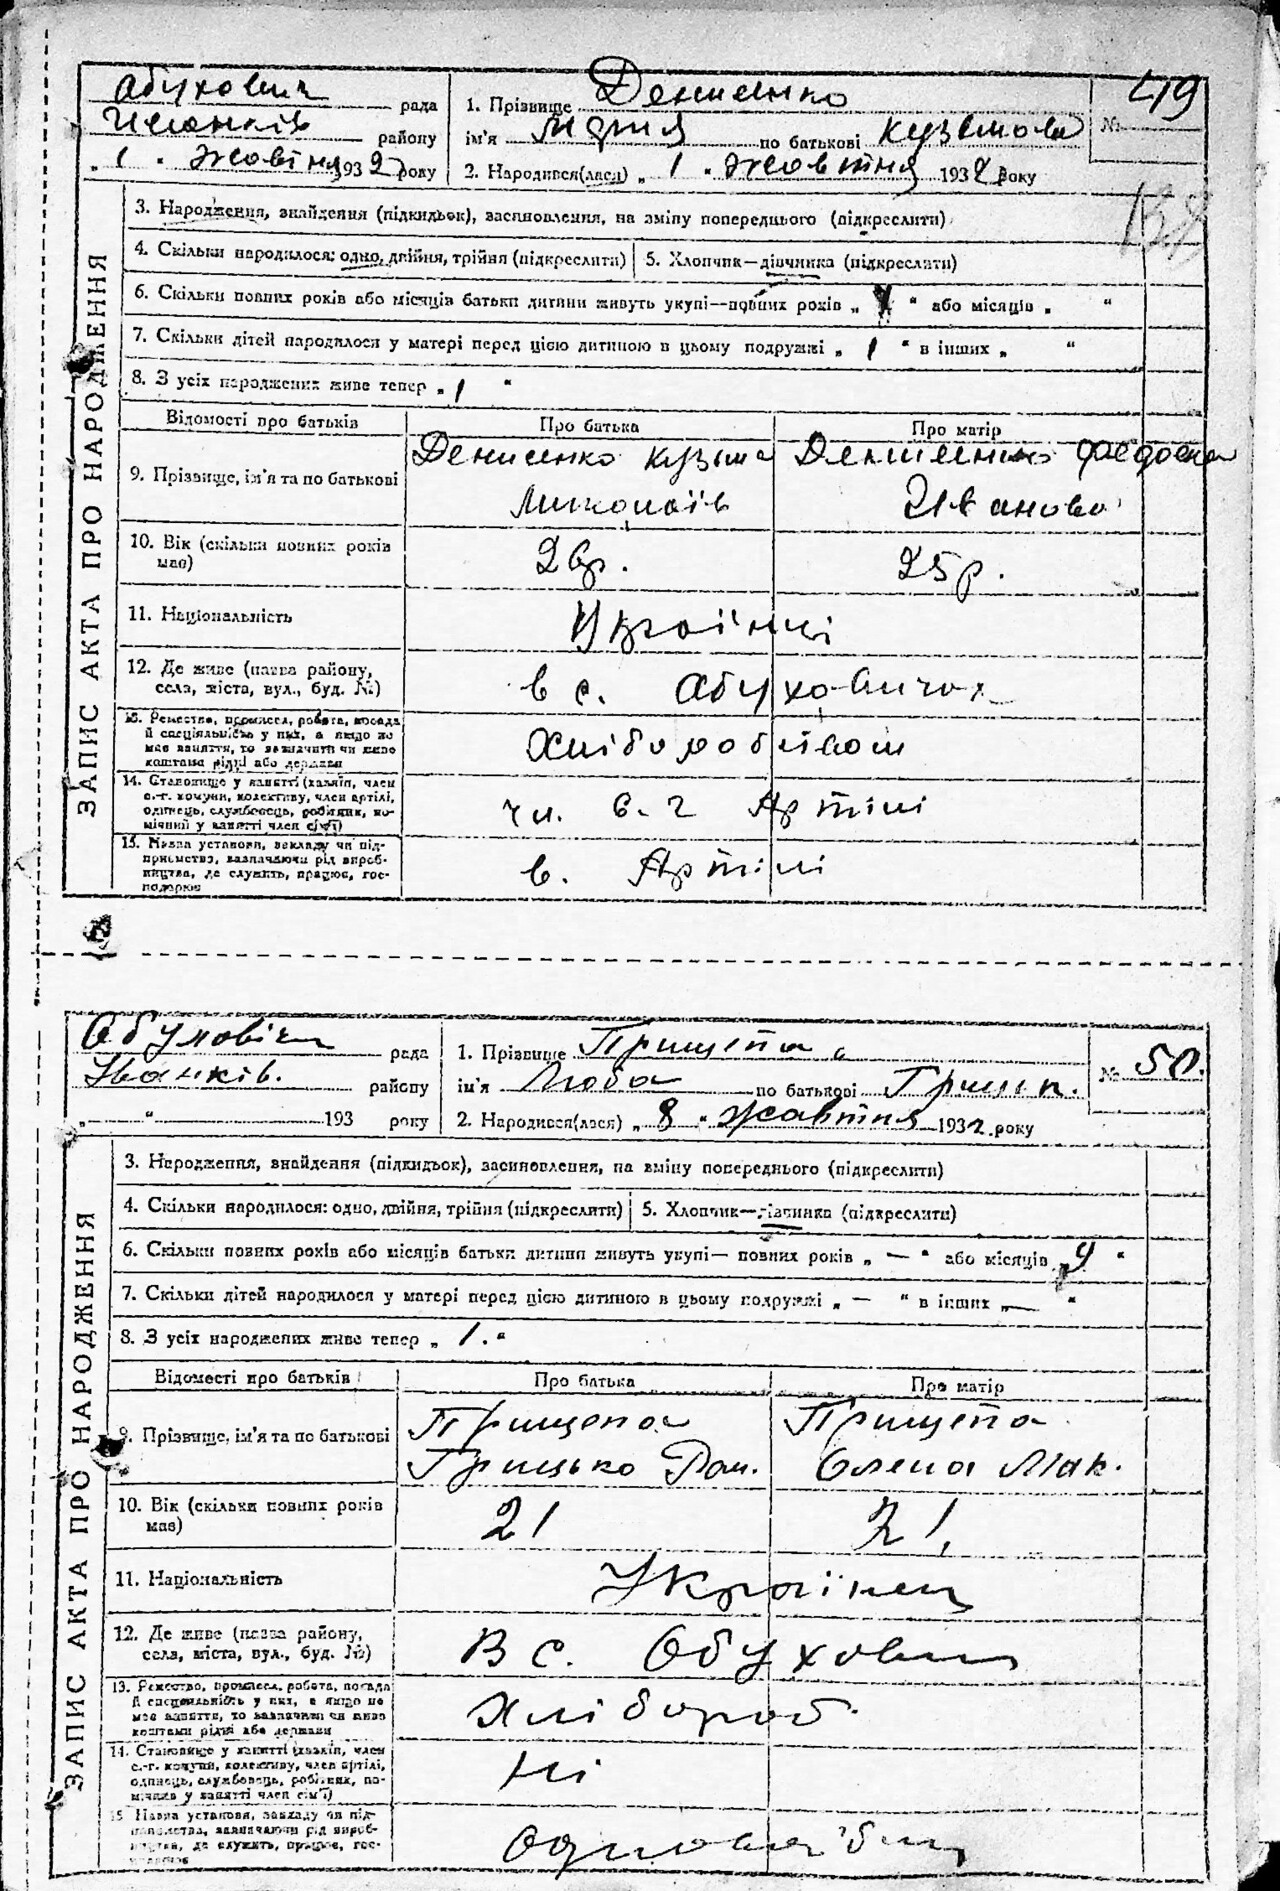 Абухович рада
району
" 1 " Жовтня 1932 року
1. Прізвище Денисенко
ім'я Мария по батькові Кузьмова
2. Народився(лася) " 1 " Жовтня 1932 року
№ 49
3. Народження, знайдення (підкидьок), засиновлення, на зміну попереднього (підкреслити)
4. Скільки народилося: одно, двійня, трійня (підкреслити) 5. Хлопчик—дівчинка (підкреслити)
6. Скільки повних років або місяців батьки дитини живуть укупі—повних років " " або місяців " "
7. Скільки дітей народилося у матері перед цією дитиною в цьому подружжі " 1 " в інших " "
8. З усіх народжених живе тепер " 1 "
ЗАПИС АКТА ПРО НАРОДЖЕННЯ
Відомості про батьків Про батька Про матір
9. Прізвище, ім'я та по батькові
Денисенко Кузьма
Миколаїв
Денисенко
Иванова
10. Вік (скільки повних років має)
26р. 25р.
11. Національність Українці
12. Де живе (назва району,
села, міста, вул., буд. №)
в с. Абуховичах
13. Ремество, промисел, робота, посада
й спеціяльність у них, а якщо не
має заняття, то зазначити чи живе
коштами рідні або держави
14. Становище у занятті (хазяїн, член
с.-г. комуни, колективу, член артілі,
одинець, службовець, робітник, по-
мічний у занятті член сім'ї)
чл. с. г Артілі
15. Назва установи, закладу чи під-
приємства, зазначаючи рід вироб-
ництва, де служить, працює, гос-
подарює
в. Артілі
Обуховічи рада
Іванків. району
" " 193 року
1. Прізвище Прищепа
ім'я Люба по батькові Гришк.
2. Народився(лася) " 8 " жовтня 1932 року
№ 50.
3. Народження, знайдення (підкидьок), засиновлення, на зміну попереднього (підкреслити)
4. Скільки народилося: одно, двійня, трійня (підкреслити) 5. Хлопчик—дівчинка (підкреслити)
6. Скільки повних років або місяців батьки дитини живуть укупі— повних років " — " або місяців " 9 "
7. Скільки дітей народилося у матері перед цією дитиною в цьому подружжі " — " в інших " — "
8. З усіх народжених живе тепер " 1. "
ЗАПИС АКТА ПРО НАРОДЖЕННЯ
Відомості про батьків Про батька Про матір
9. Прізвище, ім'я та по батькові
Прищепа
Грицько Ром.
Прищепа
Олена Мак.
10. Вік (скільки повних років має)
21 21,
11. Національність Українец
12. Де живе (назва району,
села, міста, вул., буд. №)
В с. Обухович
13. Ремество, промисел, робота, посада
й спеціяльність у них, а якщо не
має заняття, то зазначити чи живе
коштами рідні або держави
Хлібороб.
14. Становище у занятті (хазяїн, член
с.-г. комуни, колективу, член артілі,
одинець, службовець, робітник, по-
мічник у занятті член сім'ї)
Ні
15 Назва установи, закладу чи під-
приємства, зазначаючи рід вироб-
ництва, де служить, працює, гос-
подарює